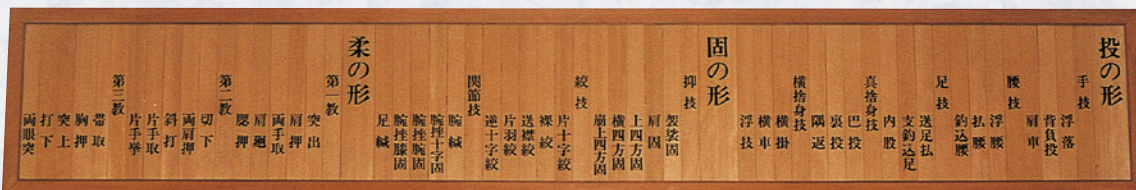 投の形
手技
浮落
背負投
肩車
腰技
浮腰
払腰
釣込腰
足技
送足払
支釣込足
内股
真捨身技
巴投
裏投
隅返
横捨身技
横掛
横車
浮技
固の形
抑技
袈裟固
肩固
上四方固
横四方固
崩上四方固
絞技
片十字絞
裸絞
送襟絞
片羽絞
逆十字絞
関節技
腕緘
腕挫十字固
腕挫腕固
腕挫膝固
足緘
柔の形
第一教
突出
肩押
両手取
肩廻
腮押
第二教
切下
両肩押
斜打
片手取
片手挙
第三教
帯取
胸押
突上
打下
両眼突